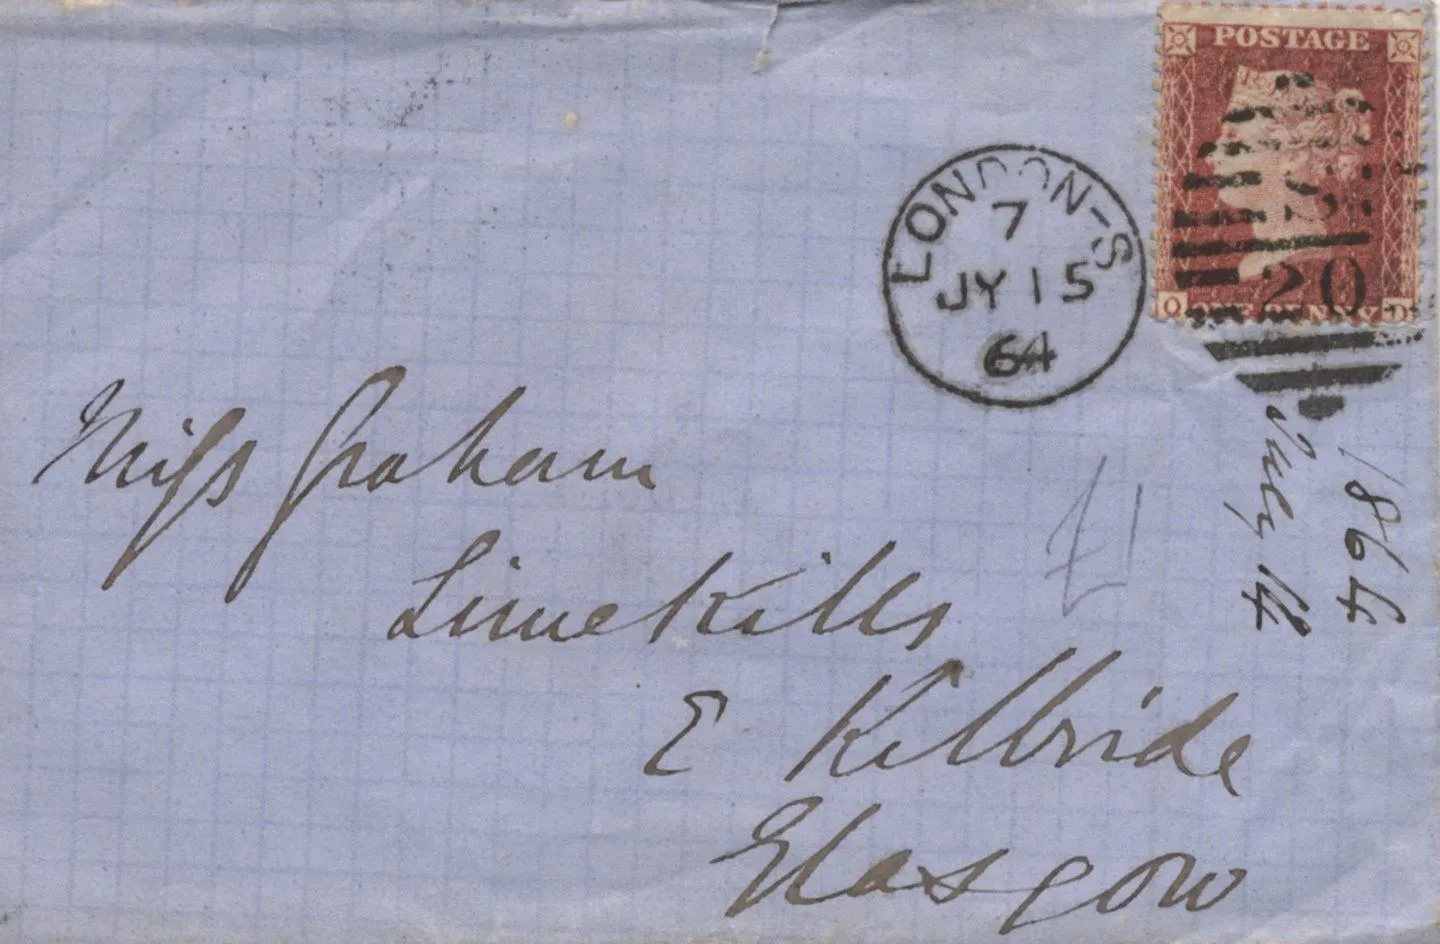 POSTAGE
Q ONE PENNY D
20
LONDON-S
7
JY 15
64
1864
July 14
Miss Graham
Limekills
E Kilbride
Glasgow